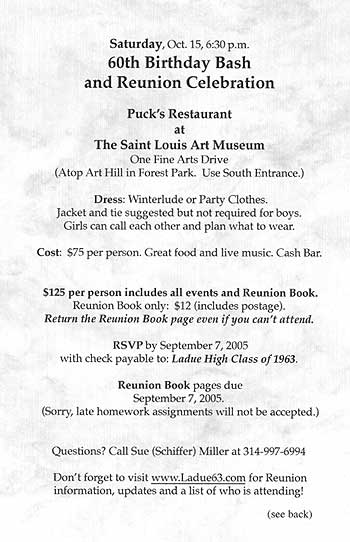 Saturday, Oct. 15, 6:30 p.m.
60th Birthday Bash
and Reunion Celebration
Puck's Restaurant
at
The Saint Louis Art Museum
One Fine Arts Drive
(Atop Art Hill in Forest Park.  Use South Entrance.)
Dress: Winterlude or Party Clothes.
Jacket and tie suggested but not required for boys.
Girls can call each other and plan what to wear.
Cost:  $75 per person. Great food and live music. Cash Bar.
$125 per person includes all events and Reunion Book.
Reunion Book only:  $12 (includes postage).
Return the Reunion Book page even if you can't attend.
RSVP by September 7, 2005
with check payable to: Ladue High Class of 1963.
Reunion Book pages due
September 7, 2005.
(Sorry, late homework assignments will not be accepted.)
Questions? Call Sue (Schiffer) Miller at 314-997-6994
Don't forget to visit www.Ladue63.com for Reunion
information, updates and a list of who is attending!
(see back)